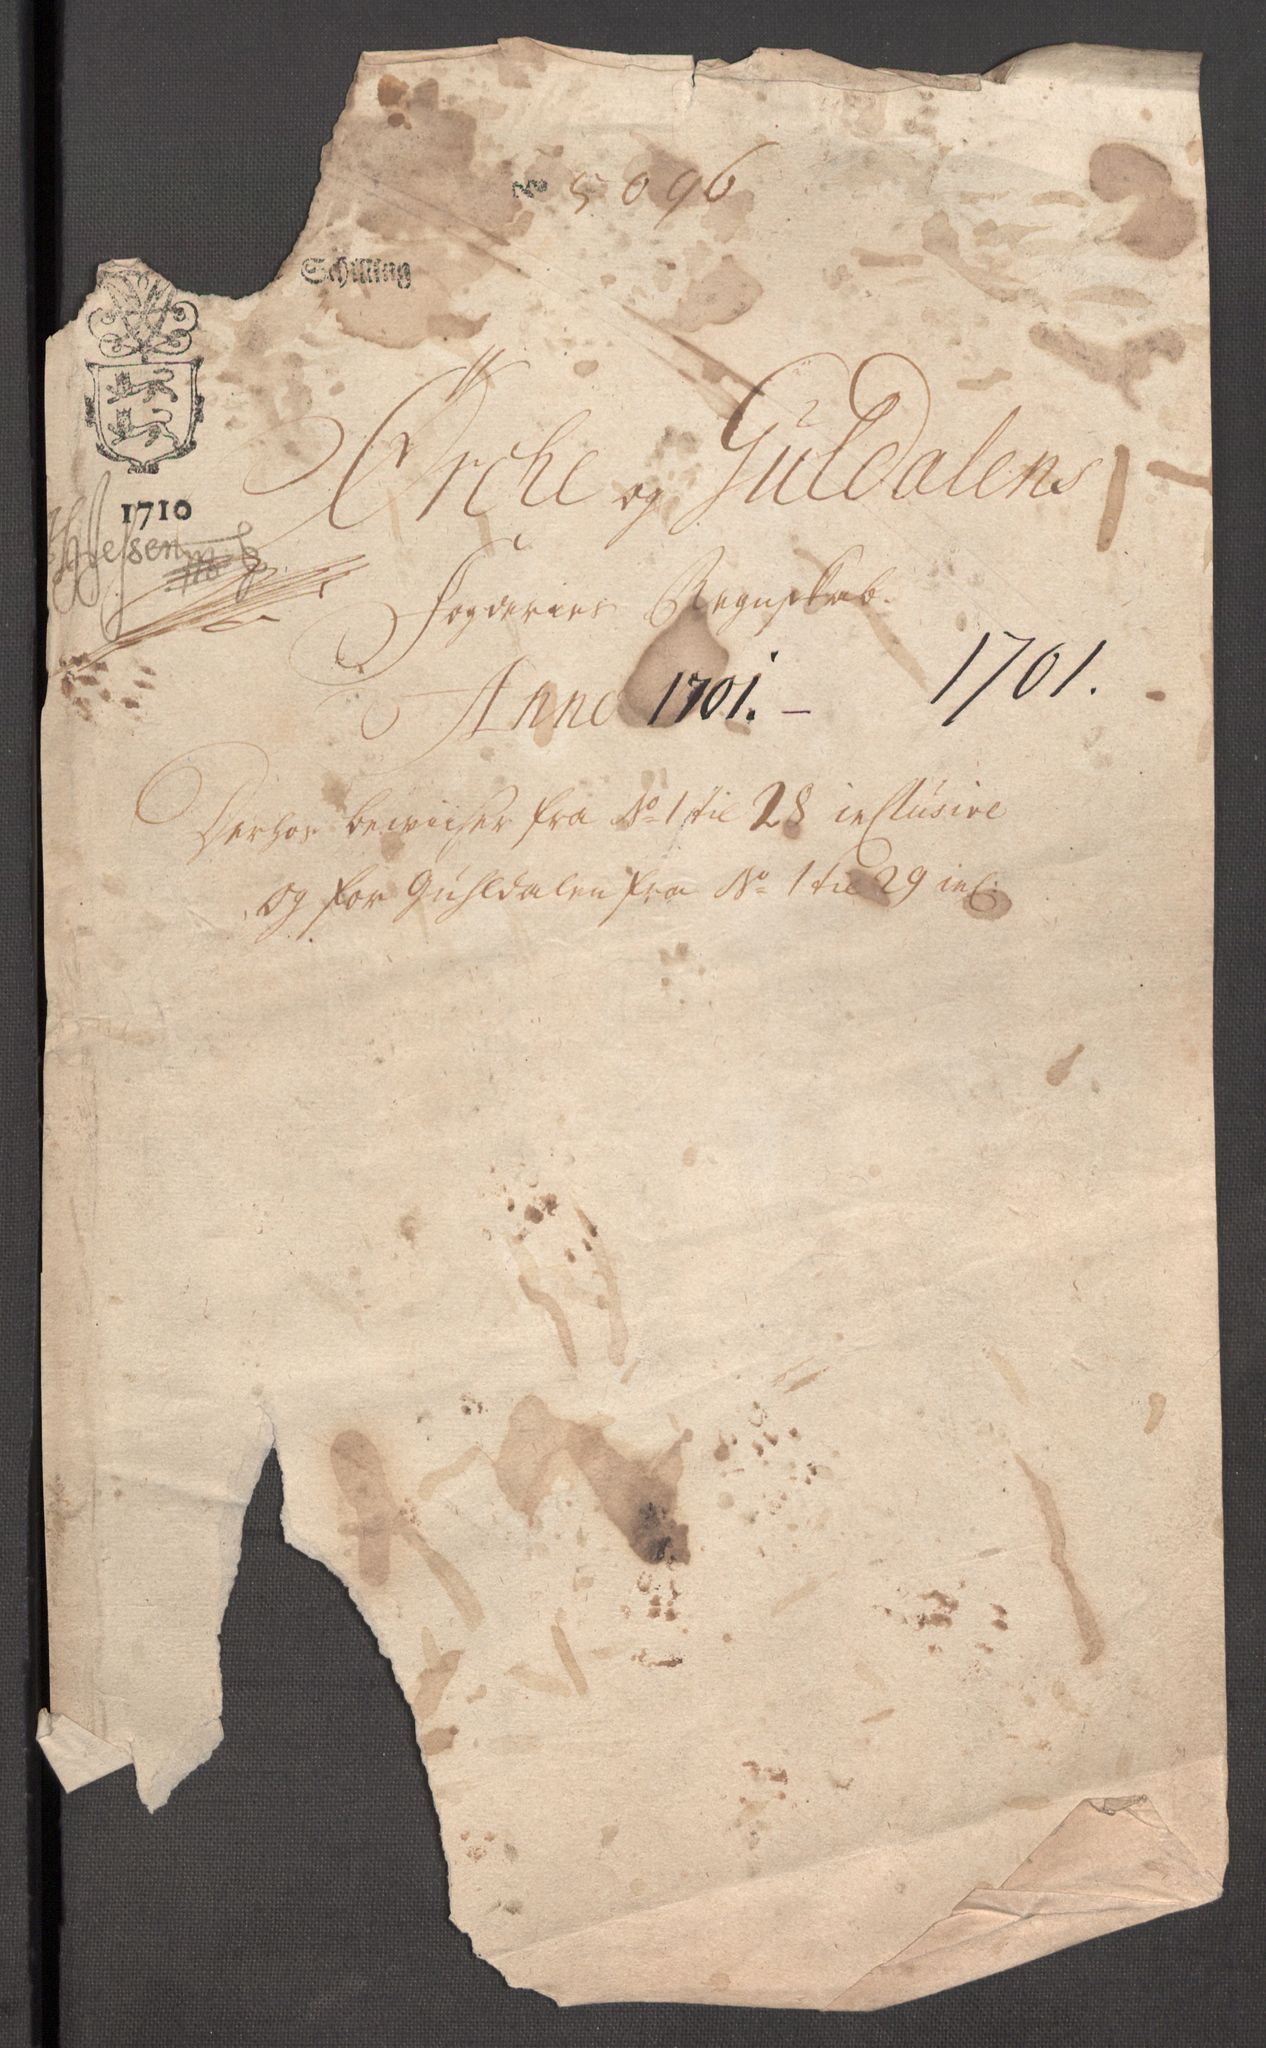 No 5096
Schilling
1710
HJessen
Ørche og Guldalens
Fogderies Regnskab.
Anno 1701. – 1701.
Derhos beviiser fra No 1 til 28 inclusive
og for Guhldalen fra No 1 til 29 incl: